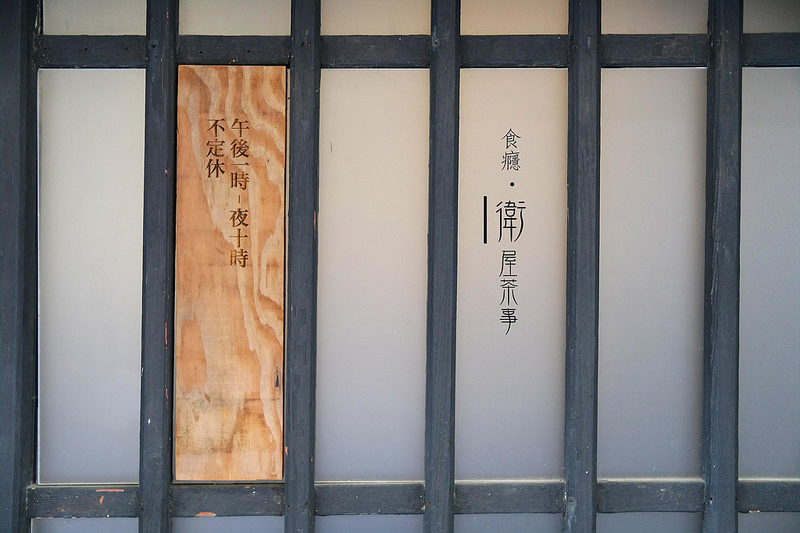 午後一時-夜十時
不定休
食癮·衛屋茶事